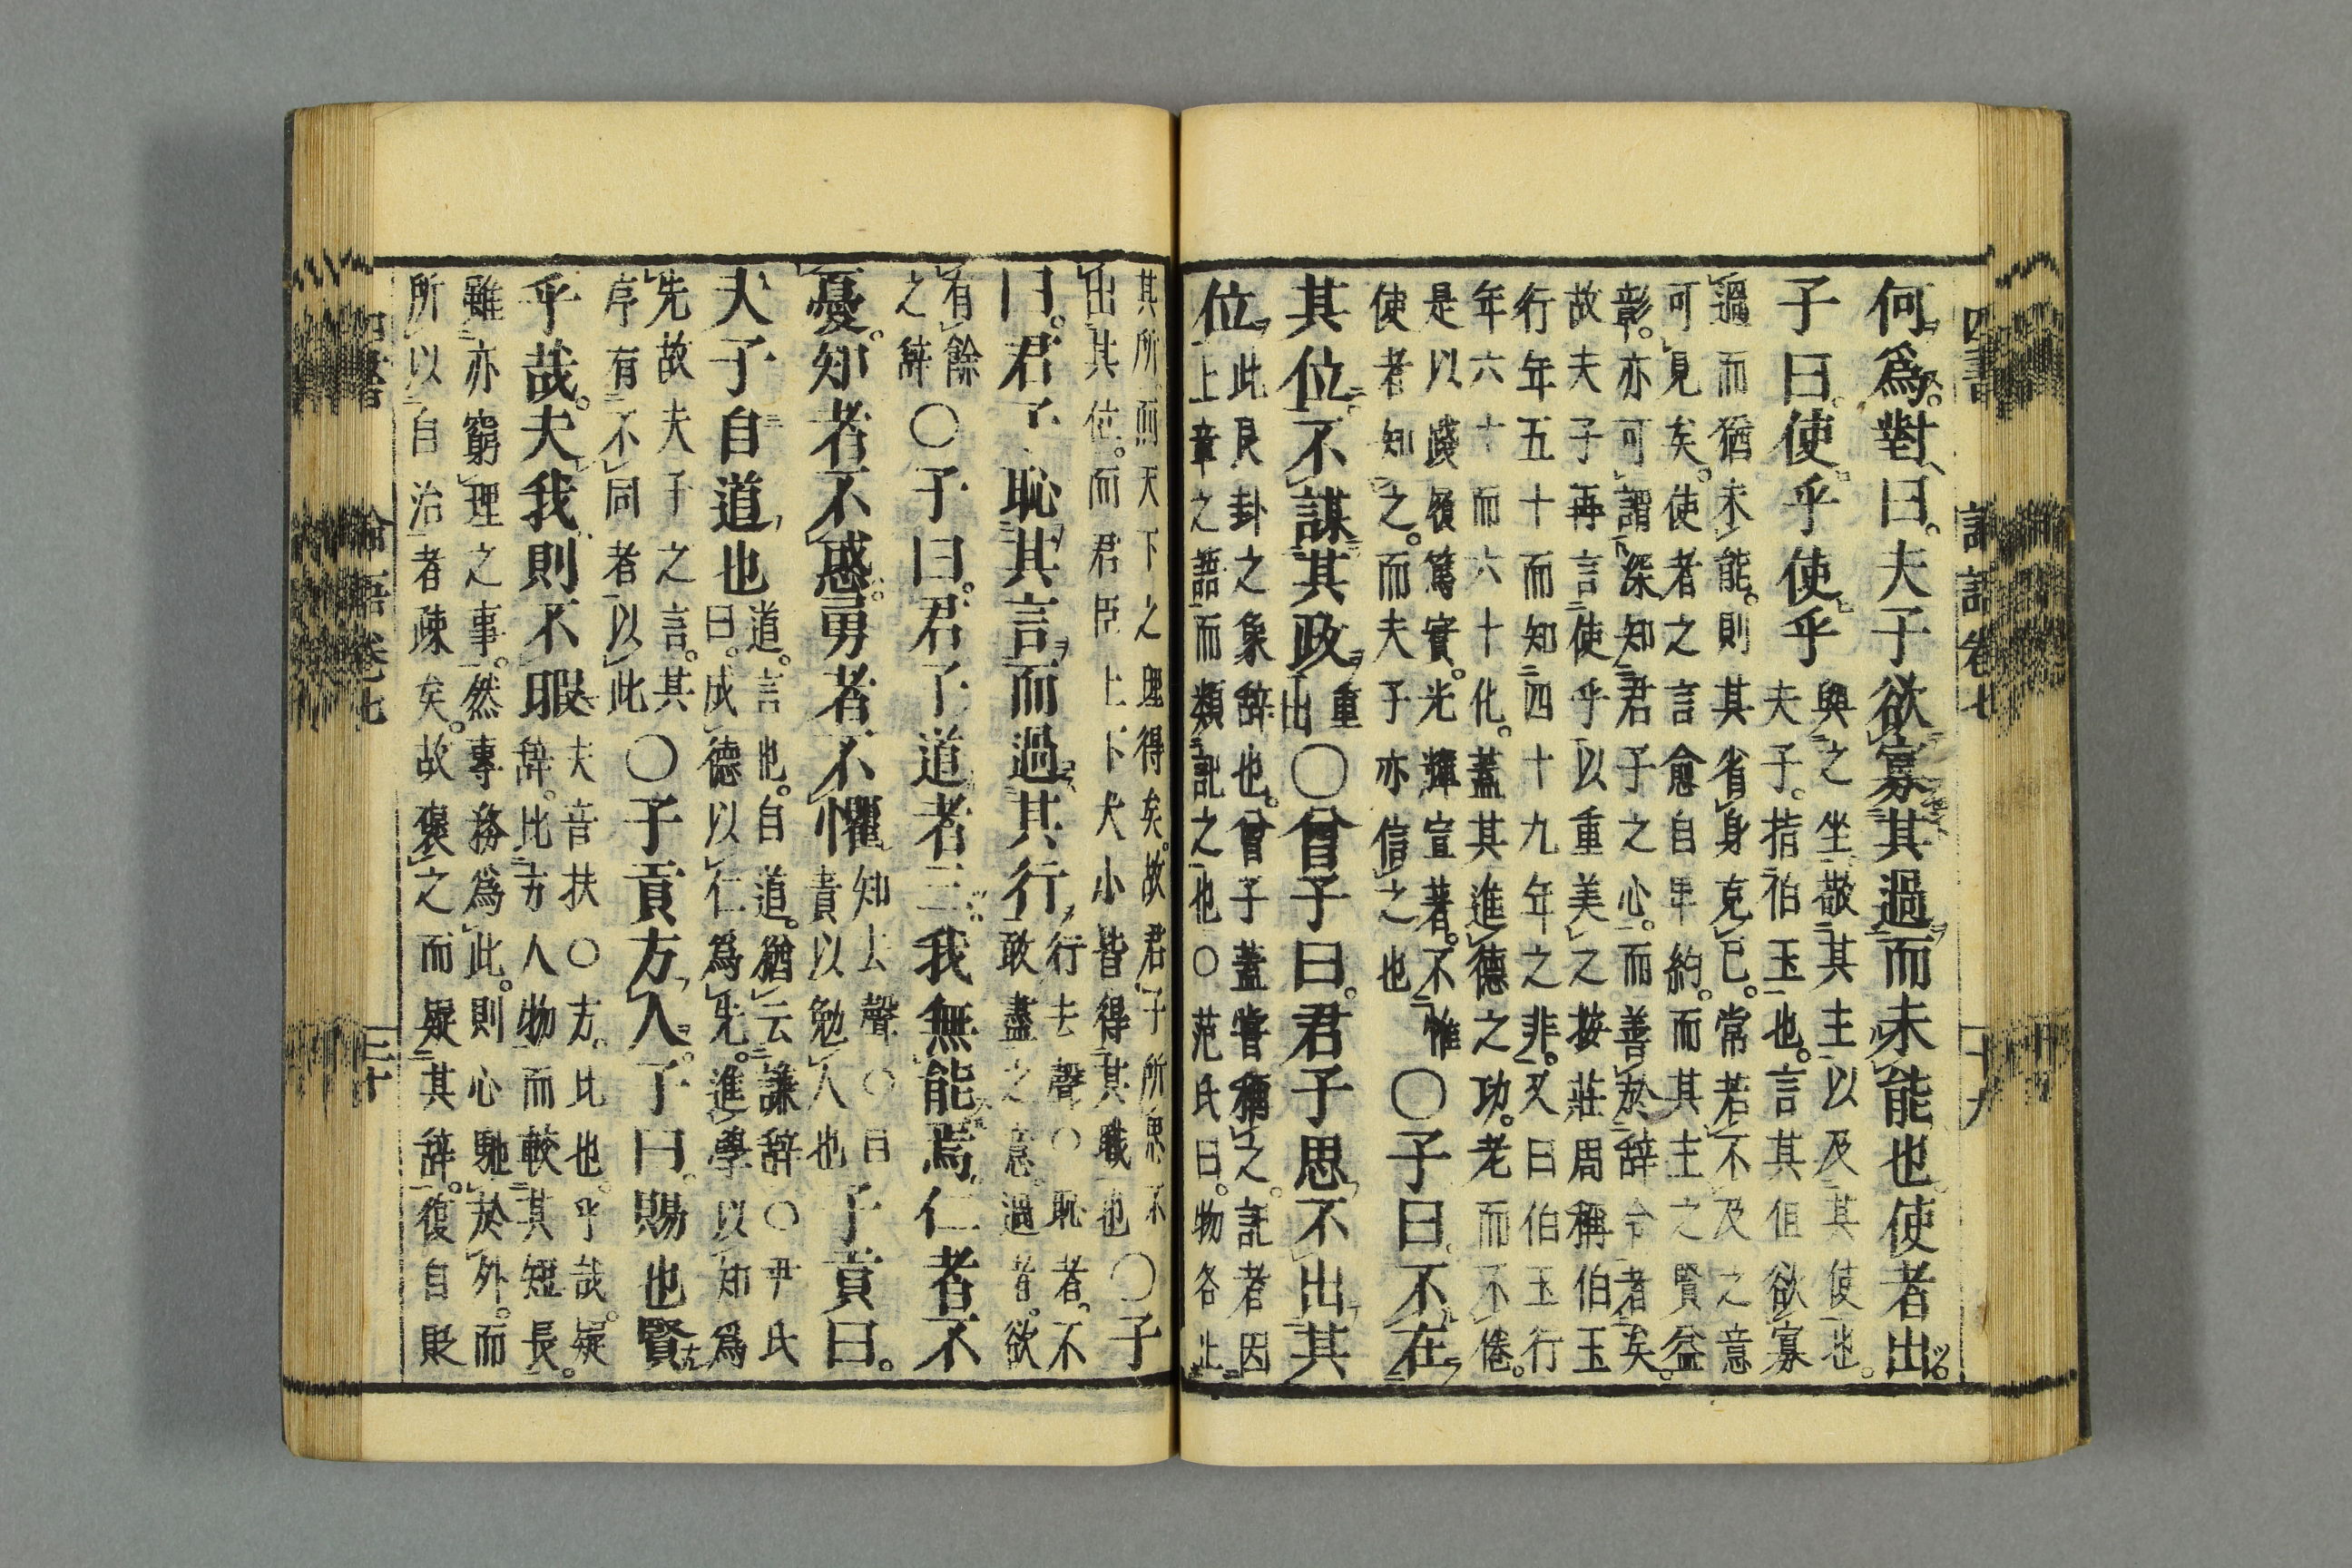 四書 論語卷七 十九
何爲。對曰。夫子欲寡其過而未能也。使者出。
子曰。使乎使乎
與之坐。敬其主以及其使也。
夫子。指伯玉也。言其但欲寡
過而猶未能。則其省身克已。常若不及之意
可見矣。使者之言愈自卑約。而其主之賢益
彰。亦可謂深知君子之心。而善於辭令者矣。
故夫子再言使乎以重美之按莊周稱伯玉
行年五十而知四十九年之非。又曰伯玉行
年六十而六十化。蓋其進德之功。老而不倦。
是以踐履篤實。光輝宣著。不惟
使者知之。而夫子亦信之也
〇子曰。不在
其位。不謀其政
重
出
〇曾子曰。君子思不出其
位
此艮卦之象辭也。曾子蓋嘗稱之。記者因
上章之語而類記之也〇范氏曰。物各止
其所而天下之理得矣。故君子所思不
出其位。而君臣上下大小皆得其職也
〇子
曰。君子恥其言而過其行
行去聲〇恥者。不
敢盡之意。過者。欲
有餘
之辭
〇子曰。君子道者三。我無能焉。仁者不
憂。知者不惑。勇者不懼
知去聲〇自
責以勉人也
子貢曰。
夫子自道也
道。言也。自道。猶云謙辭〇尹氏
曰。成德以仁爲先。進學以知爲
先故夫子之言。其
序有不同者以此
〇子貢方人。子曰。賜也賢
乎哉。夫我則不暇
夫音扶〇方。比也。乎哉。疑
辭。比方人物而較其短長。
雖亦窮理之事。然專務爲此。則心馳於外。而
所以自治者疎矣。故褒之而疑其辭。復自貶
四書 論語卷七 二十